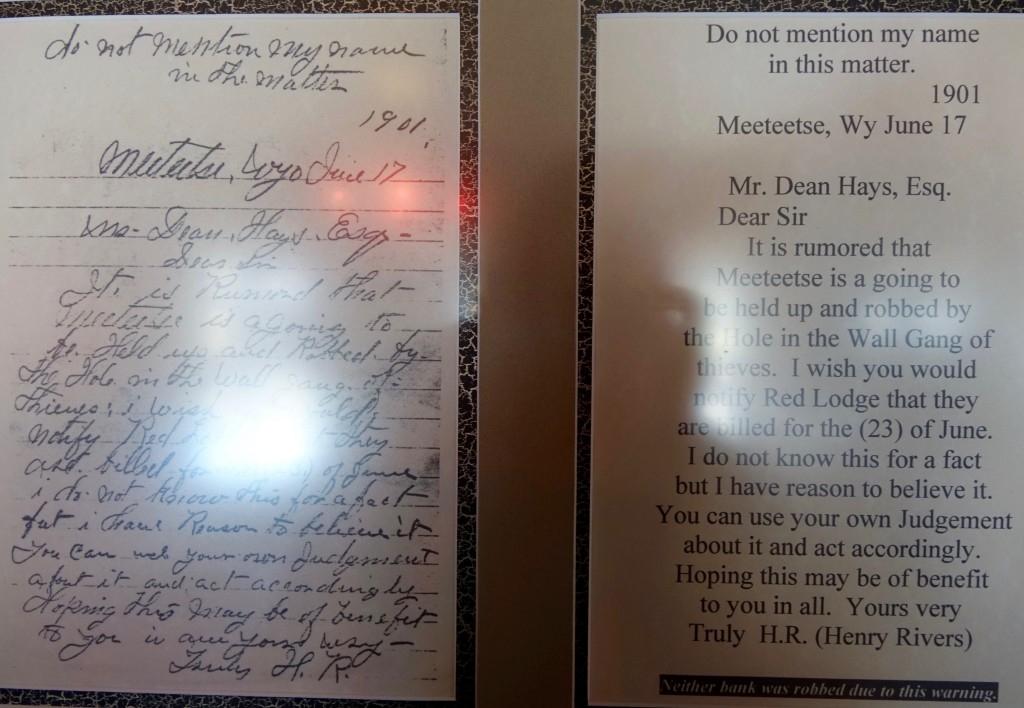 do not mention my name
in the matter
1901.
Meeteetse, Wyo June 17
Mr. Dean Hays. Esq
Dear Sir
It is Rumord that
Meeteetse is a going to
be Held up and Robbed by
the Hole in the Wall gang of
thieves; i wish
notify Red they
are billed of June
i do not know this for a fact
but i have Reason to believe it
You can use your own Judgement
about it and act accordingly
Hoping this may be of benefit
to you in all yours very
Truly H. R.
Do not mention my name
in this matter.
1901
Meeteetse, Wy June 17
Mr. Dean Hays, Esq.
Dear Sir
It is rumored that
Meeteetse is a going to
be held up and robbed by
the Hole in the Wall Gang of
thieves. I wish you would
notify Red Lodge that they
are billed for the (23) of June.
I do not know this for a fact
but I have reason to believe it.
You can use your own Judgement
about it and act accordingly.
Hoping this may be of benefit
to you in all. Yours very
Truly H.R. (Henry Rivers)
Neither bank was robbed due to this warning.